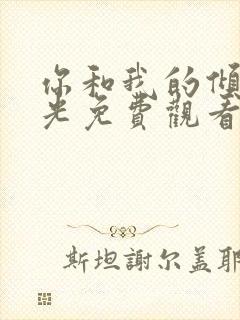 你和我的傾
光免費觀看
斯坦謝尔盖耶